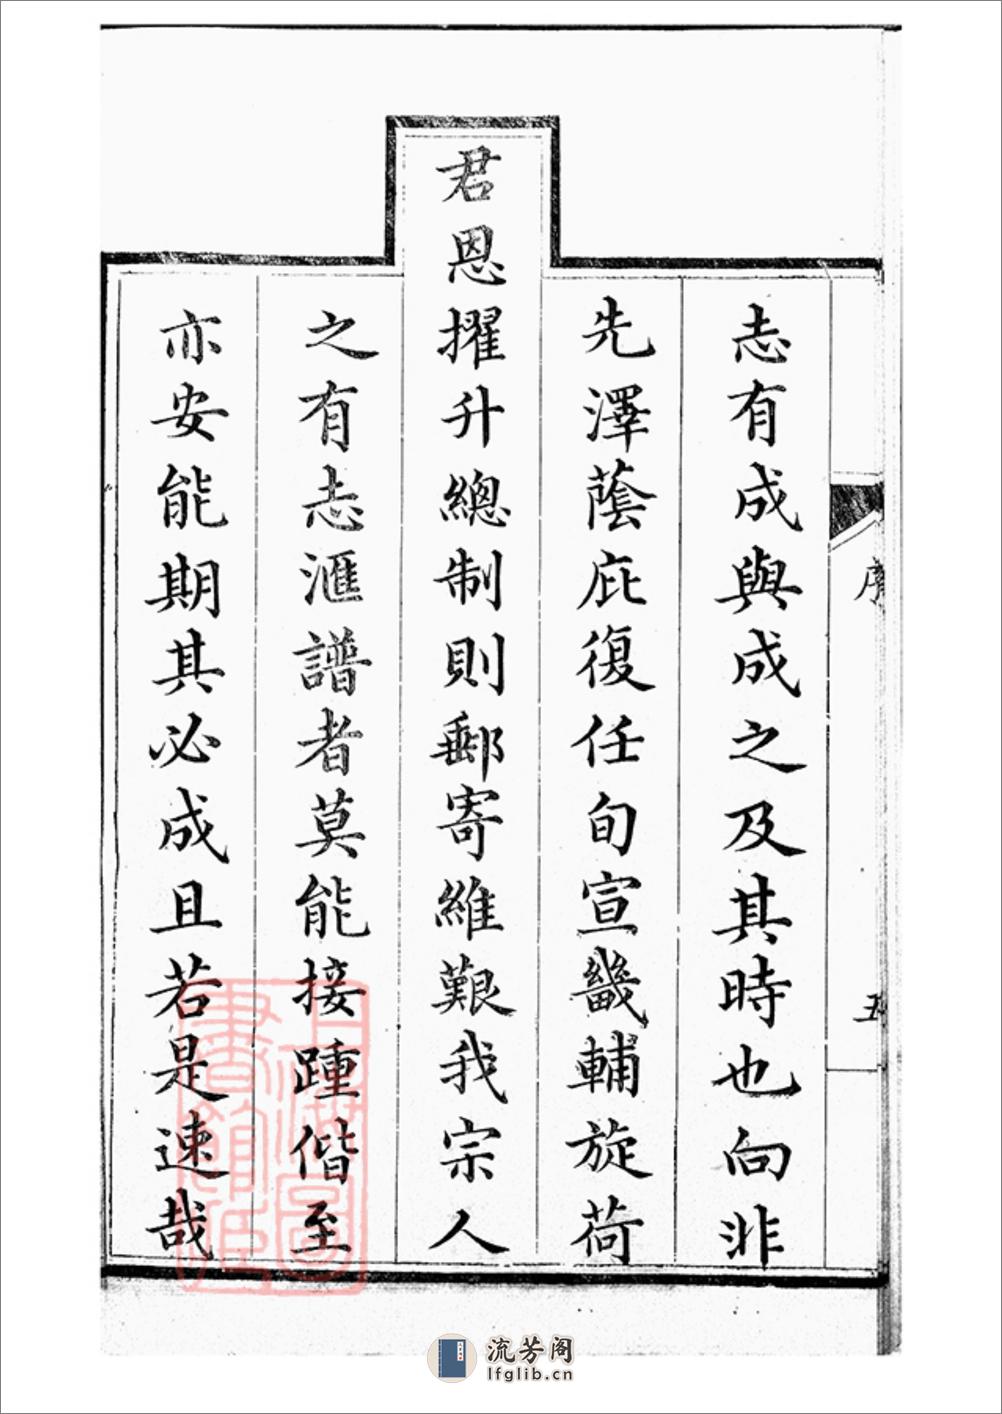 志有成與成之及其時也向非
先澤蔭庇復任旬宣畿輔旋荷
君恩擢升總制則郵寄維艱我宗人
之有志滙譜者莫能接踵偕至
亦安能期其必成且若是速哉
序
五
流芳阁
lfglib.cn